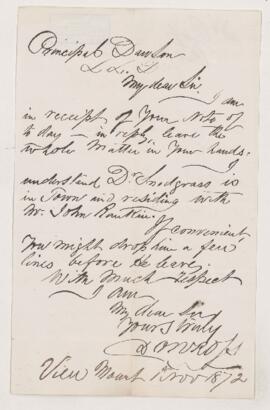 Principal Dawson
L L D
My dear Sir,
I am
in receipt of Your Note of
to day — in reply, leave the
whole Matter in Your hands.
I
understand Dr Snodgrass is
in Town and residing with
Mr. John Rankin.
If convenient
You might drop him a few
lines before he leave.
With Much Respect
I am
My dear Sir
Yours truly
View Mount Nov 1872